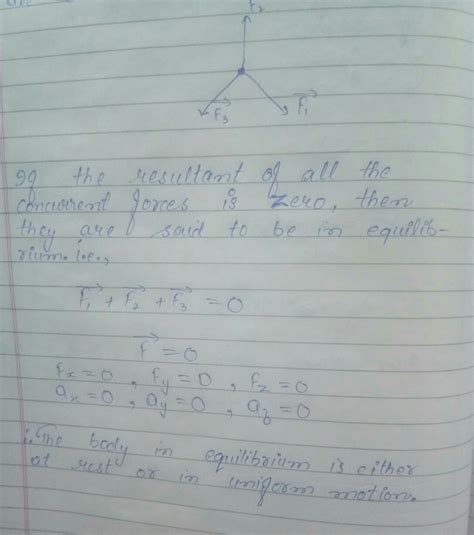 F₂
F₃ F₁
If the resultant of all the
concurrent forces is zero, then
they are said to be in equilib-
rium. i.e.,
F₁ + F₂ + F₃ = 0
F = 0
Fx = 0 , Fy = 0 , Fz = 0
ax = 0 , ay = 0 , az = 0
The body in equilibrium is either
at rest or in uniform motion.